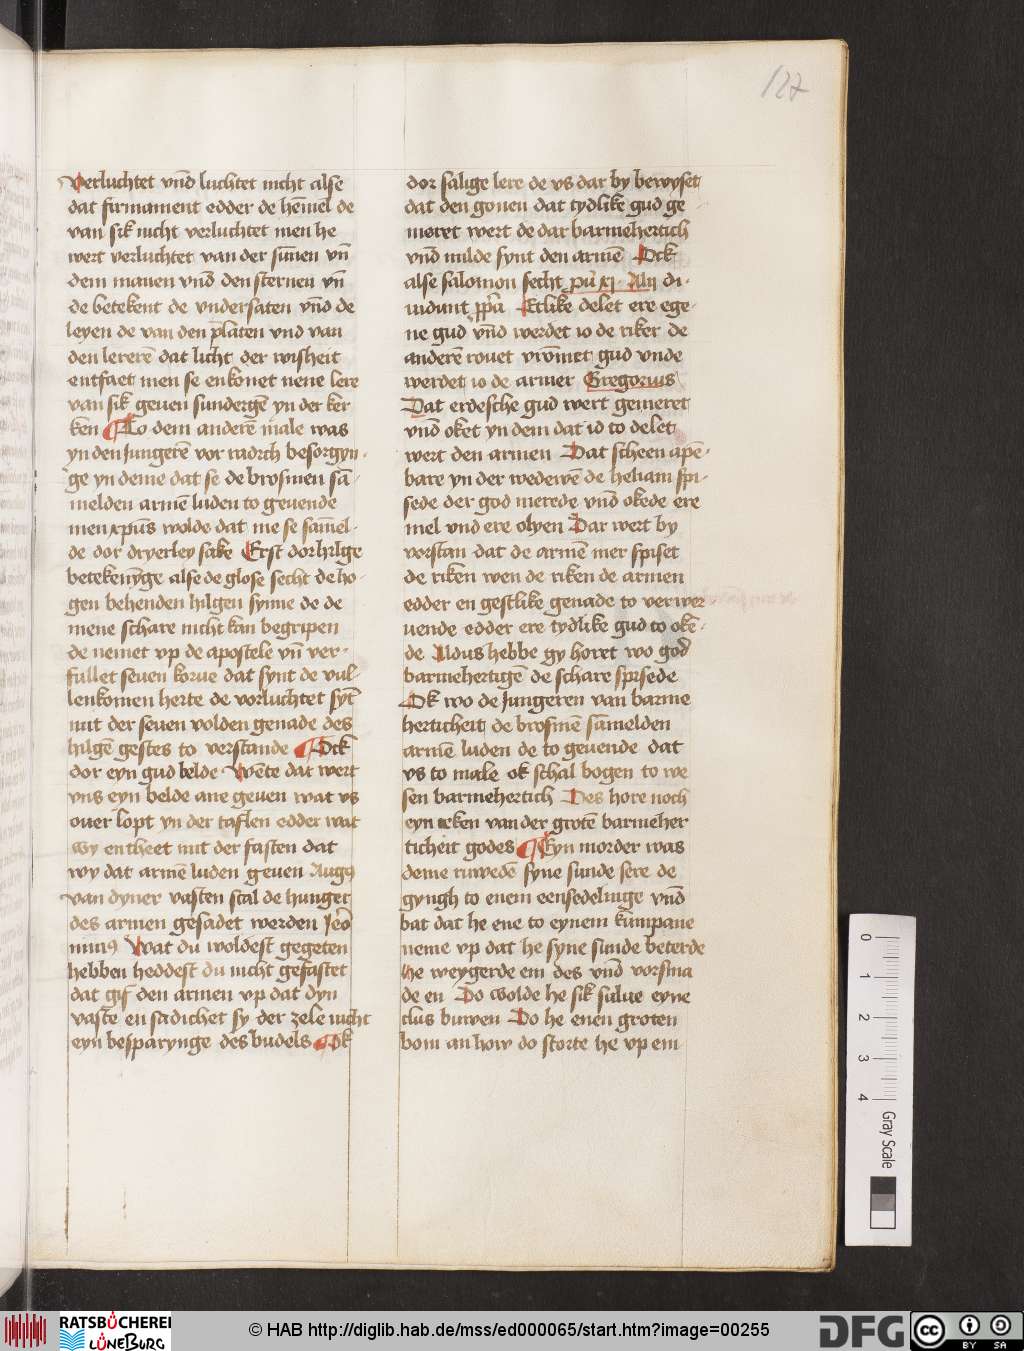 127
verluchtet vnd luchtet nicht alse
dat firmament edder de hēmel de
van sik nicht verluchtet men he
wert verluchtet van der sūnen vn̄
dem manen vnd den sternen vn̄
de betekent de vndersaten vnd de
leyen de van den platen vnd van
den lererē dat licht der wisheit
entfaet men se enkonet nene lere
van sik geuen sundergē yn der ker
ken To dem anderē male was
yn den Jungerē vor radrch besorgyn-
ge yn deme dat se de brosmen sā-
melden armē luden to geuende
men xpūs wolde dat me se sāmel-
de dor dryerley sake Erst dor hilge
betekenȳge alse de glose secht de ho-
gen behenden hilgen synne de de
mene schare nicht kan begripen
de nemet vp de apostele vn̄ ver-
fullet seuen korue dat synt de vul-
lenkomen herte de vorluchtet syt̄
mit der seuen volden genade des
hilgē gestes to verstande Ock
dor eyn gud belde Wēte dat wert
vns eyn belde ane geuen wat vs
ouer lopt yn der taflen edder wat
wy entheet mit der fasten dat
wy dat armē luden geuen Augꝰ
van dyner vasten scal de hunger
des armen gesadet werden Jeo
nimꝰ Wat du woldest gegeten
hebben heddest du nicht gefastet
dat gif den armen vp dat dyn
vaste en sadichet sy der zele nicht
eyn besparynge des budels Ok
dor salige lere de vs dar by bewyset
dat den gonen dat tydlike gud ge
meret wert de dar barmehertich
vnd milde synt den armē Ock
alse salomon secht pūꝰ xj. Alij di-
uidunt pp̄a Etlike delet ere ege-
ne gud vnd werdet io de riker de
anderē rouet vrōmet gud vnde
werdet io de armer Gregorius
Dat erdesche gud wert gemeret
vnd oket yn dem dat id to delet
wert den armen Dat scheen apē-
bare yn der wedewē de heliam spi-
sede der god merede vnd okede ere
mel vnd ere olyen Dar wert by
vorstan dat de armē mer spiset
de riken wen de riken de armen
edder en gestlike genade to verwer
uende edder ere tydlike gud to okē-
de Aldus hebbe gy horet wo god
barmehertigē de schare spisede
Ok wo de Jungeren van barme
herticheit de brosmē sāmelden
armē luden de to geuende dat
vs to male ok schal bogen to we
sen barmehertich Des hore noch
eyn teken van der grotē barmeher
ticheit godes Eyn morder was
deme ruwedē syne sunde sere de
gyngh to enem eensedelinge vnd
bat dat he ene to eynem kumpane
neme vp dat he syne sunde beterde
he weygerde em des vnd vorsma
de en Do wolde he sik sulue eyne
clus buwen Do he enen groten
bom an how do storte he vp em
0
1
2
3
4
Gray Scale
RATSBÜCHEREI
LÜNEBURG
© HAB http://diglib.hab.de/mss/ed000065/start.htm?image=00255
DFG
cc
BY SA